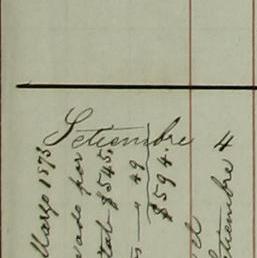 Setiembre 4
Marzo 1873
vado por
tal $545,
" 49
$594.
Setiembre